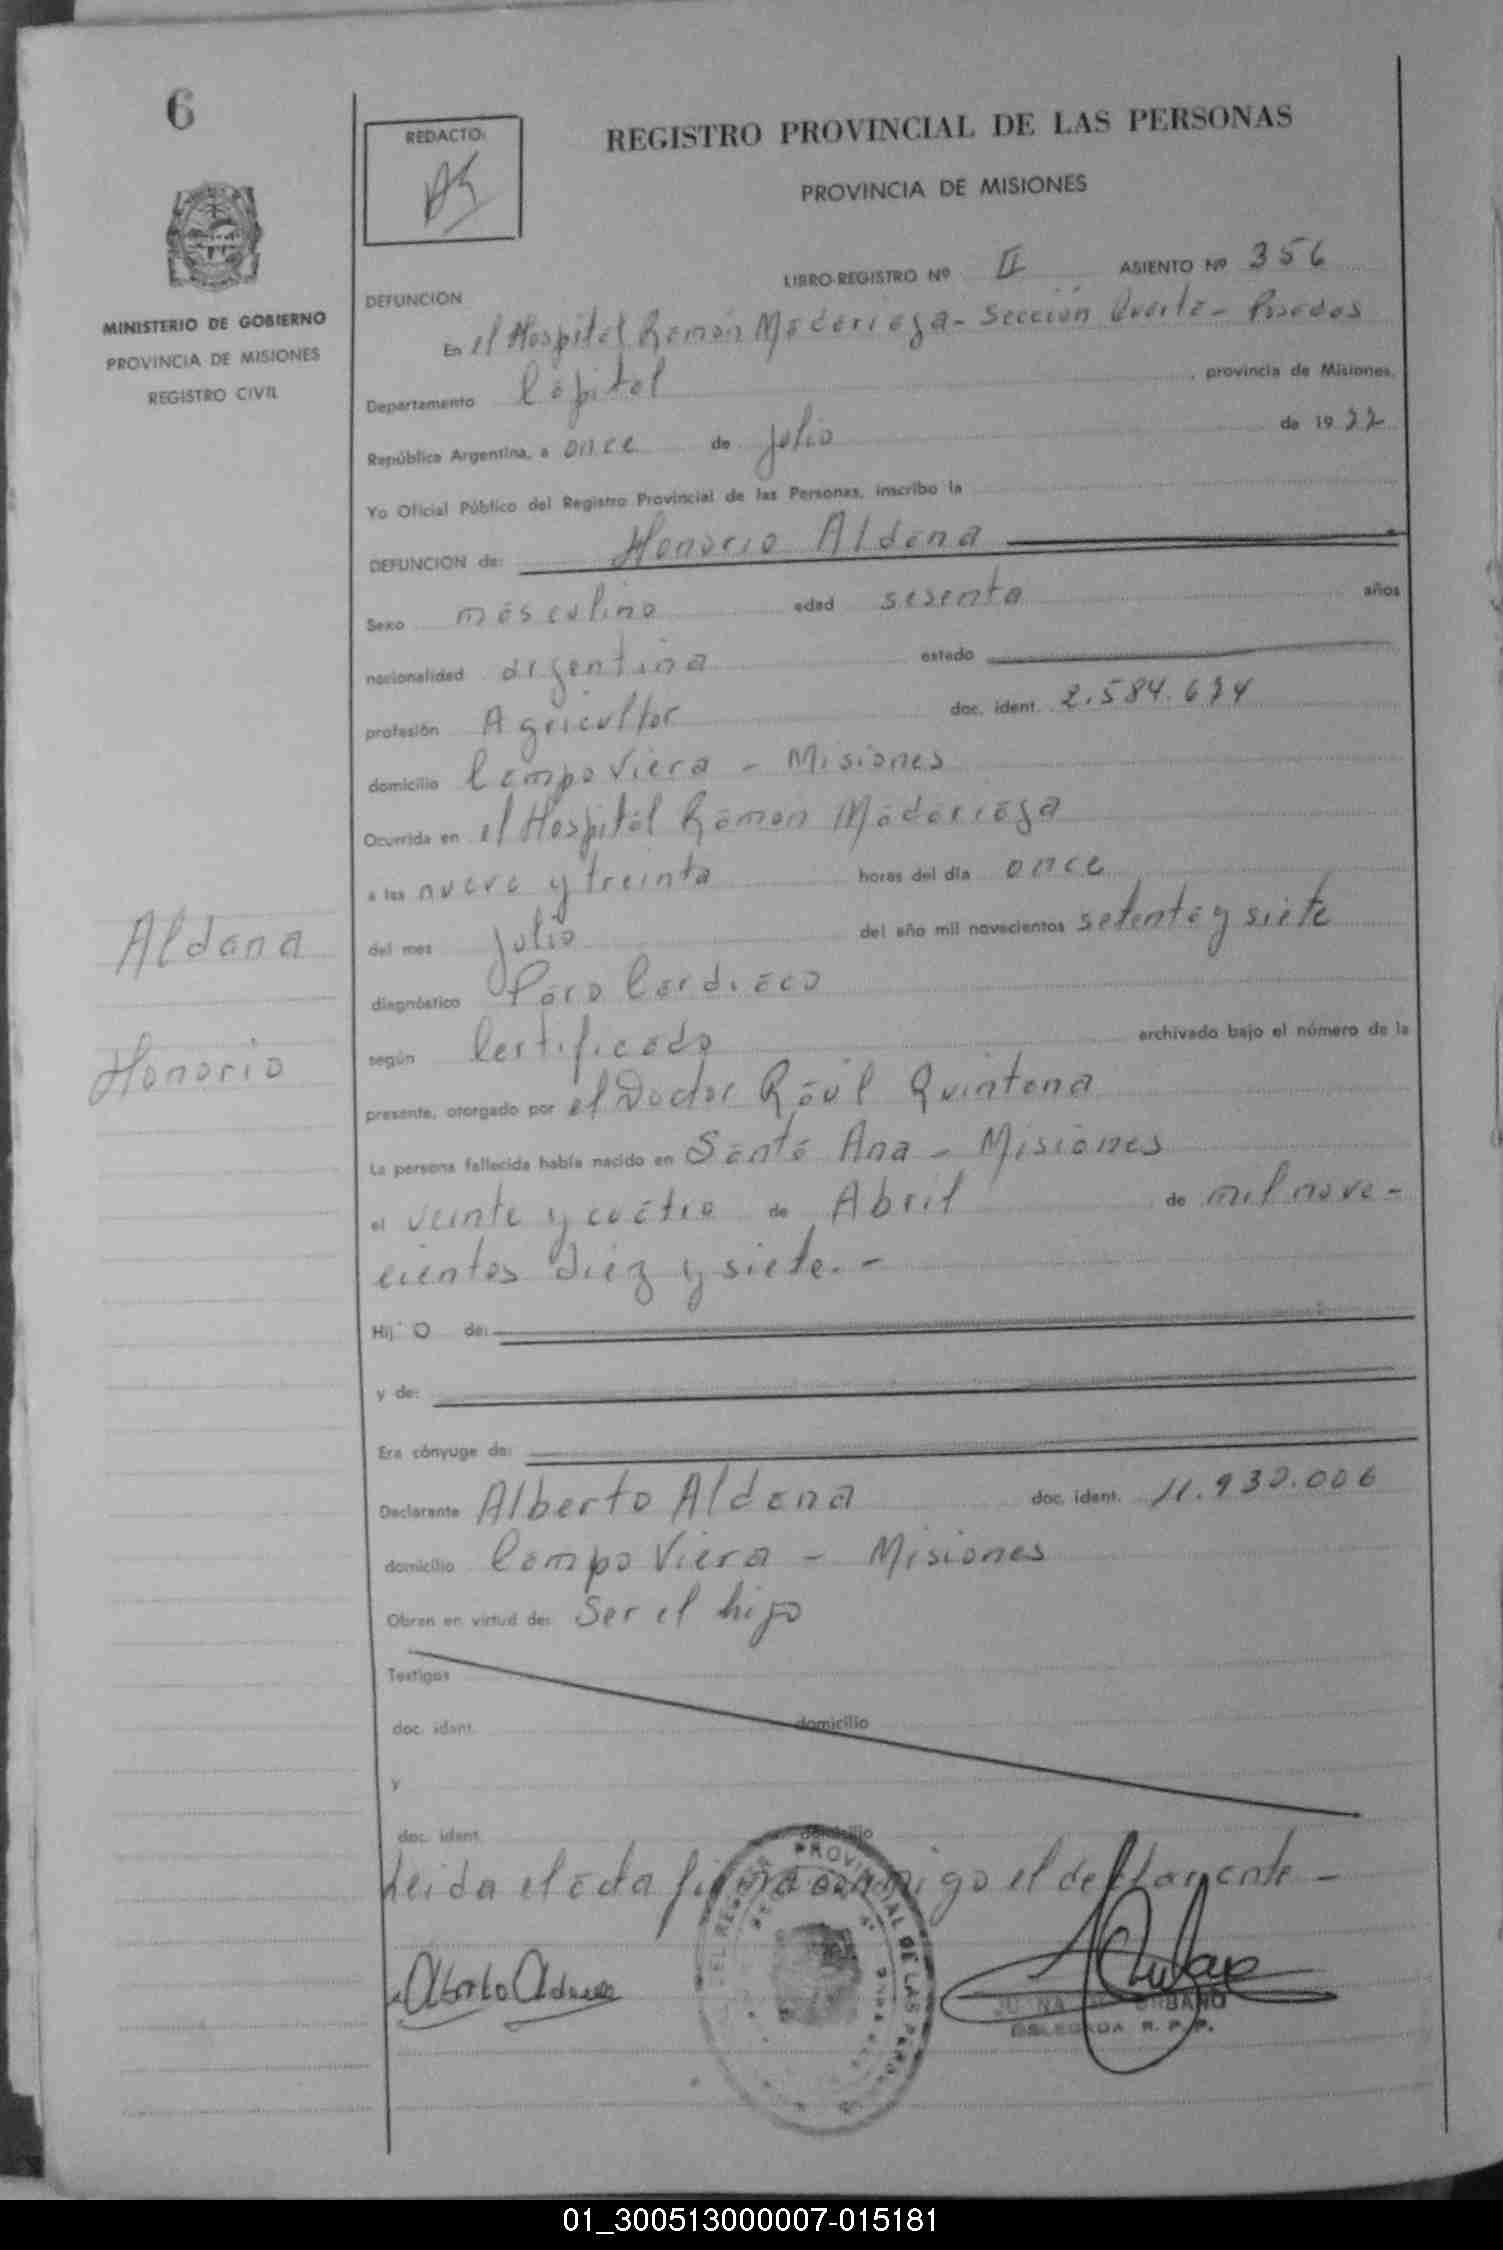 6
REDACTO:
REGISTRO PROVINCIAL DE LAS PERSONAS
PROVINCIA DE MISIONES
LIBRO-REGISTRO Nº II ASIENTO Nº 356
MINISTERIO DE GOBIERNO
PROVINCIA DE MISIONES
REGISTRO CIVIL
DEFUNCION
En el Hospital Ramon Madariaga - Sección Cuarta - Posadas
Departamento Capital, provincia de Misiones,
República Argentina, a once de julio de 1977
Yo Oficial Público del Registro Provincial de las Personas, inscribo la
DEFUNCION de: Honorio Aldana
Sexo masculino edad sesenta años
nacionalidad argentina estado
profesión Agricultor doc. ident. 2.584.674
domicilio Campo Viera - Misiones
Ocurrida en el Hospital Ramon Madariaga
a las nueve y treinta horas del día once
del mes julio del año mil novecientos setenta y siete
diagnóstico Paro Cardiaco
según Certificado archivado bajo el número de la
presente, otorgado por el Doctor Raúl Quintana
La persona fallecida había nacido en Santa Ana - Misiones
el veinte y cuatro de Abril de mil nove-
cientos diez y siete.-
Hij O de:
y de:
Era cónyuge de:
Declarante Alberto Aldana doc. ident. 11.930.006
domicilio Campo Viera - Misiones
Obran en virtud de: Ser el hijo
Testigos
doc. ident. domicilio
y
doc. ident. domicilio
Leida el acta firma conmigo el declarante -
Aldana
Honorio
Alberto Aldana
PROVINCIAL DE LAS
URBANO
DELEGADA R. P. P.
01_300513000007-015181